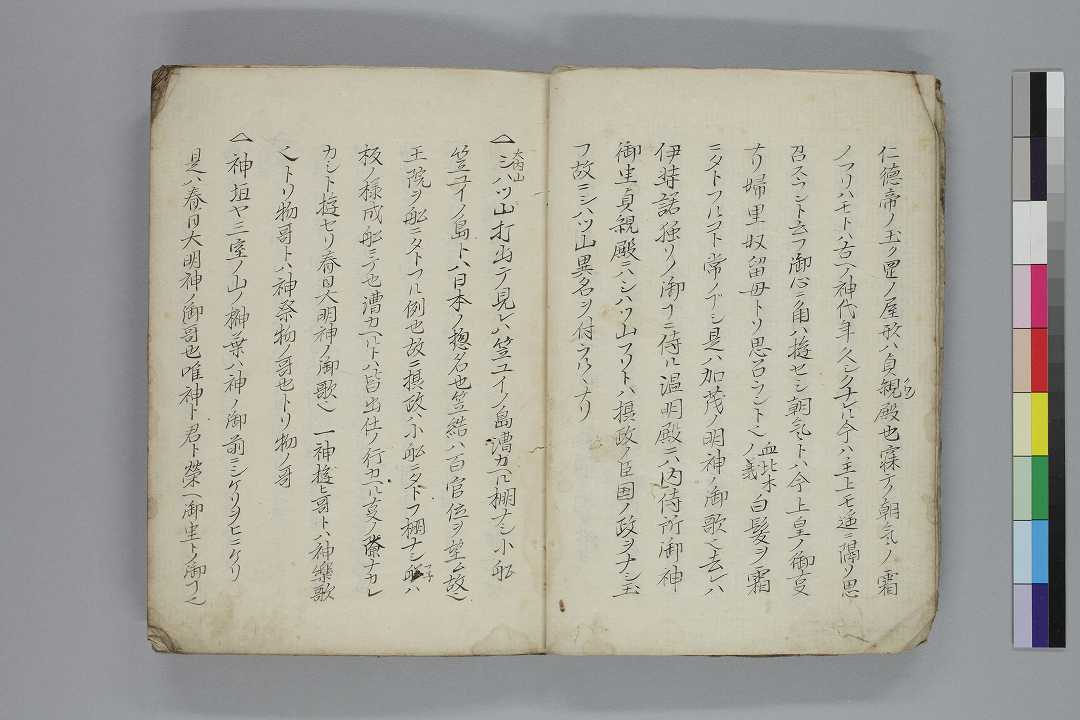 仁徳帝ノ玉ノ置ノ屋形ハ貞親殿也霜下ノ朝氣ノ霜
ノフリハモトハ古ヘノ神代年久シクナレ氏今ハ主上モ遊ニ隅リ思
召スラント云フ御心ニ角ハ遊セシ朝氣ミトハ今上皇ノ御亥
ナリ婦里奴留毋トソ思召ラントヘノ義 白髪ヲ霜
ニタトフルコト常ノ了シ是ハ加茂ノ明神ノ御歌ヘ去レハ
伊弉諾独リノ御了ニ侍ル温明殿ニハ内侍所御神
御坐貞親殿ニハシハツ山フリトハ摂政ノ臣国ノ政ヲナシ玉
フ故ニシハツ山異名ヲ付ラルヽナリ
大内山
一シハツ山打出テ見レハ笠ユイノ島漕カヘル棚ナシ小船
笠ユイノ島トハ日本ノ惣名也笠結ハ百官位ヲ望ム故ヘ
王院ヲ船ニタトフル例也故ニ摂政ハ小船ニタトフ棚ナシ船ハ
板ノ様成船ミテ也漕カヘルトハ皆出仕ノ行カヘル亥ノ滞ナカレ
カシト遊セリ春日大明神ノ御歌ヘ 一神遊ヒ哥トハ神樂歌
ヘトリ物哥トハ神祭物ノ哥也トリ物ノ哥
一神垣ヤ三室ノ山ノ榊葉ハ神ノ御前ニシケリヲヒニケリ
是ハ春日大明神ノ御哥也唯神ト君ト榮ヘ御坐トノ御了ヘ